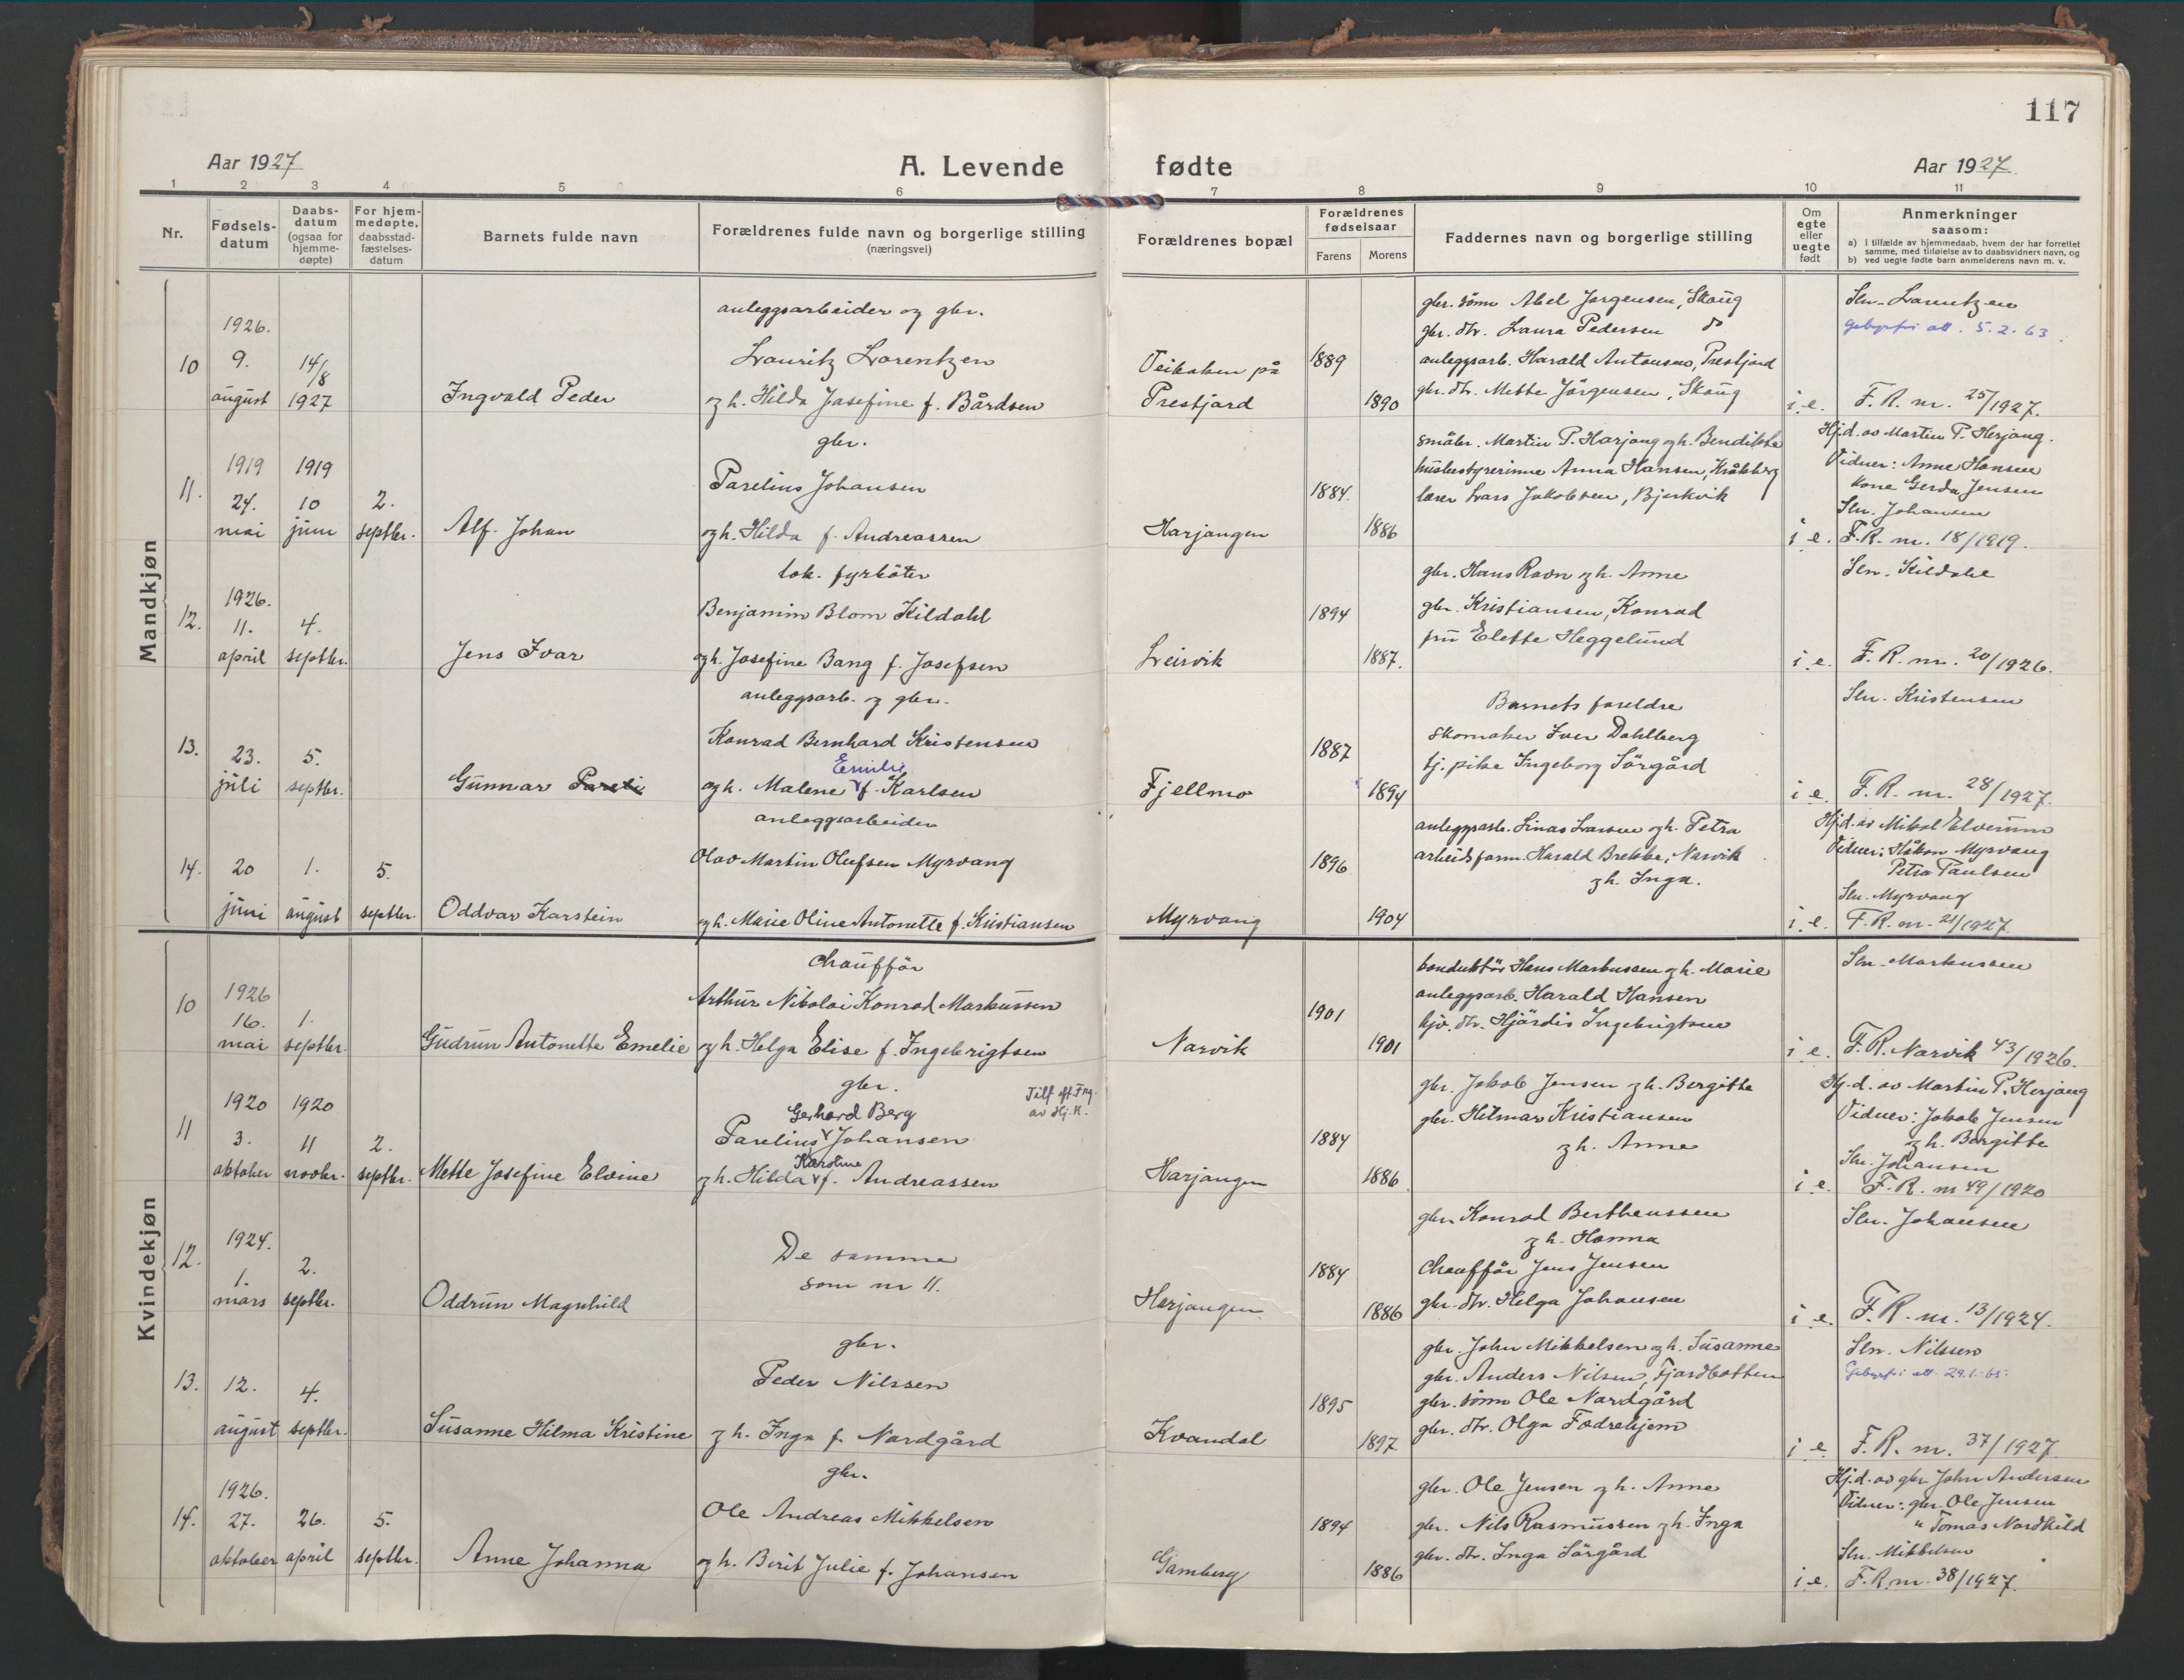 117
Aar 1927
A. Levende fødte
Aar 1927.
1 2 3 4 5 6 7 8 9 10 11
Nr.
Fødsels-
datum
Daabs-
datum
(ogsaa for
hjemme-
døpte)
For hjem-
medøpte,
daabsstad-
fæstelses-
datum
Barnets fulde navn
Forældrenes fulde navn og borgerlige stilling
(næringsvei)
Forældrenes bopæl
Forældrenes
fødselsaar
Farens Morens
Faddernes navn og borgerlige stilling
Om
egte
eller
uegte
født
Anmerkninger
saasom:
a) i tilfælde av hjemmedaab, hvem der har forrettet
samme, med tilføielse av to daabsvidners navn, og
b) ved uegte fødte barn anmelderens navn m. v.
Mandkjøn
10
1926.
9.
august
14/8
1927
Ingvald Peder
anleggsarbeider og gbr.
Lauritz Lorentzen
og h. Hilda Josefine f. Bårdsen
Veibakken på
Prestjord
1889
1890
gbr. sønn Abel Jørgensen, Skoug
gbr. dtr. Laura Pedersen do
anleggsarb. Harald Antonsen, Prestjord
gbr. dtr. Mette Jörgensen, Skoug
i. e.
Sln. Lorentzen
gebyrfri att. 5.2.63.
F. R. nr. 25/1927.
11.
1919
24.
mai
1919
10
juni
2.
septbr.
Alf Johan
gbr.
Parelius Johansen
og h. Hilda f. Andreassen
Harjangen
1884.
1886
småbr. Martin P. Harjang og h. Bendikte
husbestyrerinne Anna Hansen, Kråkberg
lærer Lars Jakobsen, Bjerkvik
i e.
Hj.d. av Martin P. Herjang.
Vidner: Anne Hansen
kone Gerda Jensen
Sln. Johansen
F. R. nr. 18/1919.
12.
1926.
11.
april
4.
septbr.
Jens Ivar
lok. fyrböter
Benjamin Blom Kildahl
og h. Josefine Bang f. Josefsen
Leirvik
1894
1887.
gbr. Hans Ravn og h. Anne
gbr. Kristiansen, Konrad
fru Elette Heggelund
i e.
Sln. Kildahl
F. R. nr. 20/1926.
13.
23.
juli
5.
septbr.
Gunnar Pareli
anleggsarb. og gbr.
Konrad Bernhard Kristensen
Emilie
og h. Malene f. Karlsen
Fjellmo
1887
1894
Barnets foreldre
skomaker Iver Dahlberg
tj. pike Ingeborg Sörgård
i e.
Sln. Kristensen
F. R. nr. 28/1927.
14.
20
juni
1.
august
5.
septbr.
Oddvar Karstein
anleggsarbeider
Olav Martin Olufsen Myrvang
og h. Marie Oline Antonette f. Kristiansen
Myrvang
1896
1904
anleggsarb. Linas Larsen og h. Petra
arbeidsform. Harald Brekke, Narvik
og h. Inga.
i e.
Hj.d. av Mikal Elverum
Vidner: Håkon Myrvang
Petra Paulsen
Sln. Myrvang
F. R. nr. 21/1927
Kvindekjøn
10
1926
16.
mai
1.
septbr.
Gudrun Antonette Emelie
Chaufför
Arthur Nikolai Konrad Markussen
og h. Helga Elise f. Ingebrigtsen
Narvik
1901
1901
konduktör Hans Markussen og h. Marie
anleggsarb. Harald Hansen
hjv. dtr. Hjördis Ingebrigtsen
i e.
Sln. Markussen
F. R. Narvik 43/1926.
11
1920
3.
oktober
1920
11
novbr.
2.
septbr.
Mette Josefine Elvine
gbr.
Tilf. eft. Frg.
av Hj. K.
Gerhard Berg
Parelius Johansen
Karoline
og h. Hilda f. Andreassen
Harjangen
1884
1886
gbr. Jakob Jensen og h. Bergitte
gbr. Hilmar Kristiansen
og h. Anne
i e.
Hj.d. av Martin P. Herjang
Vidner: Jakob Jensen
og h. Bergitte
Sln. Johansen
F. R. nr 49/1920
12.
1924.
1.
mars
2.
septbr.
Oddrun Magnhild
De samme
som nr 11.
Harjangen
1884
1886
gbr. Konrad Bertheussen
og h. Hanna
Chaufför Jens Jensen
gbr. dtr. Helga Johansen
i e.
Sln. Johansen
F. R. nr. 13/1924.
13.
12.
august
4.
septbr.
Susanne Hilma Kristine
gbr.
Peder Nilssen
og h. Inga f. Nordgård
Kvandal
1895
1897
gbr. John Mikkelsen og h. Susanne
gbr. Anders Nilsen, Fjordbotten
gbr. sönn Ole Nordgård
gbr. dtr. Olga Fodrehjem
i e.
Sln. Nilssen
Gebyrfri att. 29.1.-65.
F. R. nr. 37/1927
14.
1926.
27.
oktober
26.
april
5.
septbr.
Anne Johanna
gbr.
Ole Andreas Mikkelsen
og h. Berit Julie f. Johansen
Gamberg
1894
1886
gbr. Ole Jensen og h. Anne
gbr. Nils Rasmussen og h. Inga
gbr. dtr. Inga Sörgård
i. e.
Hj.d. av gbr. John Andersen
Vidner: gbr. Ole Jensen
" Tomas Nordkild
Sln. Mikkelsen
F. R. nr. 38/1927.